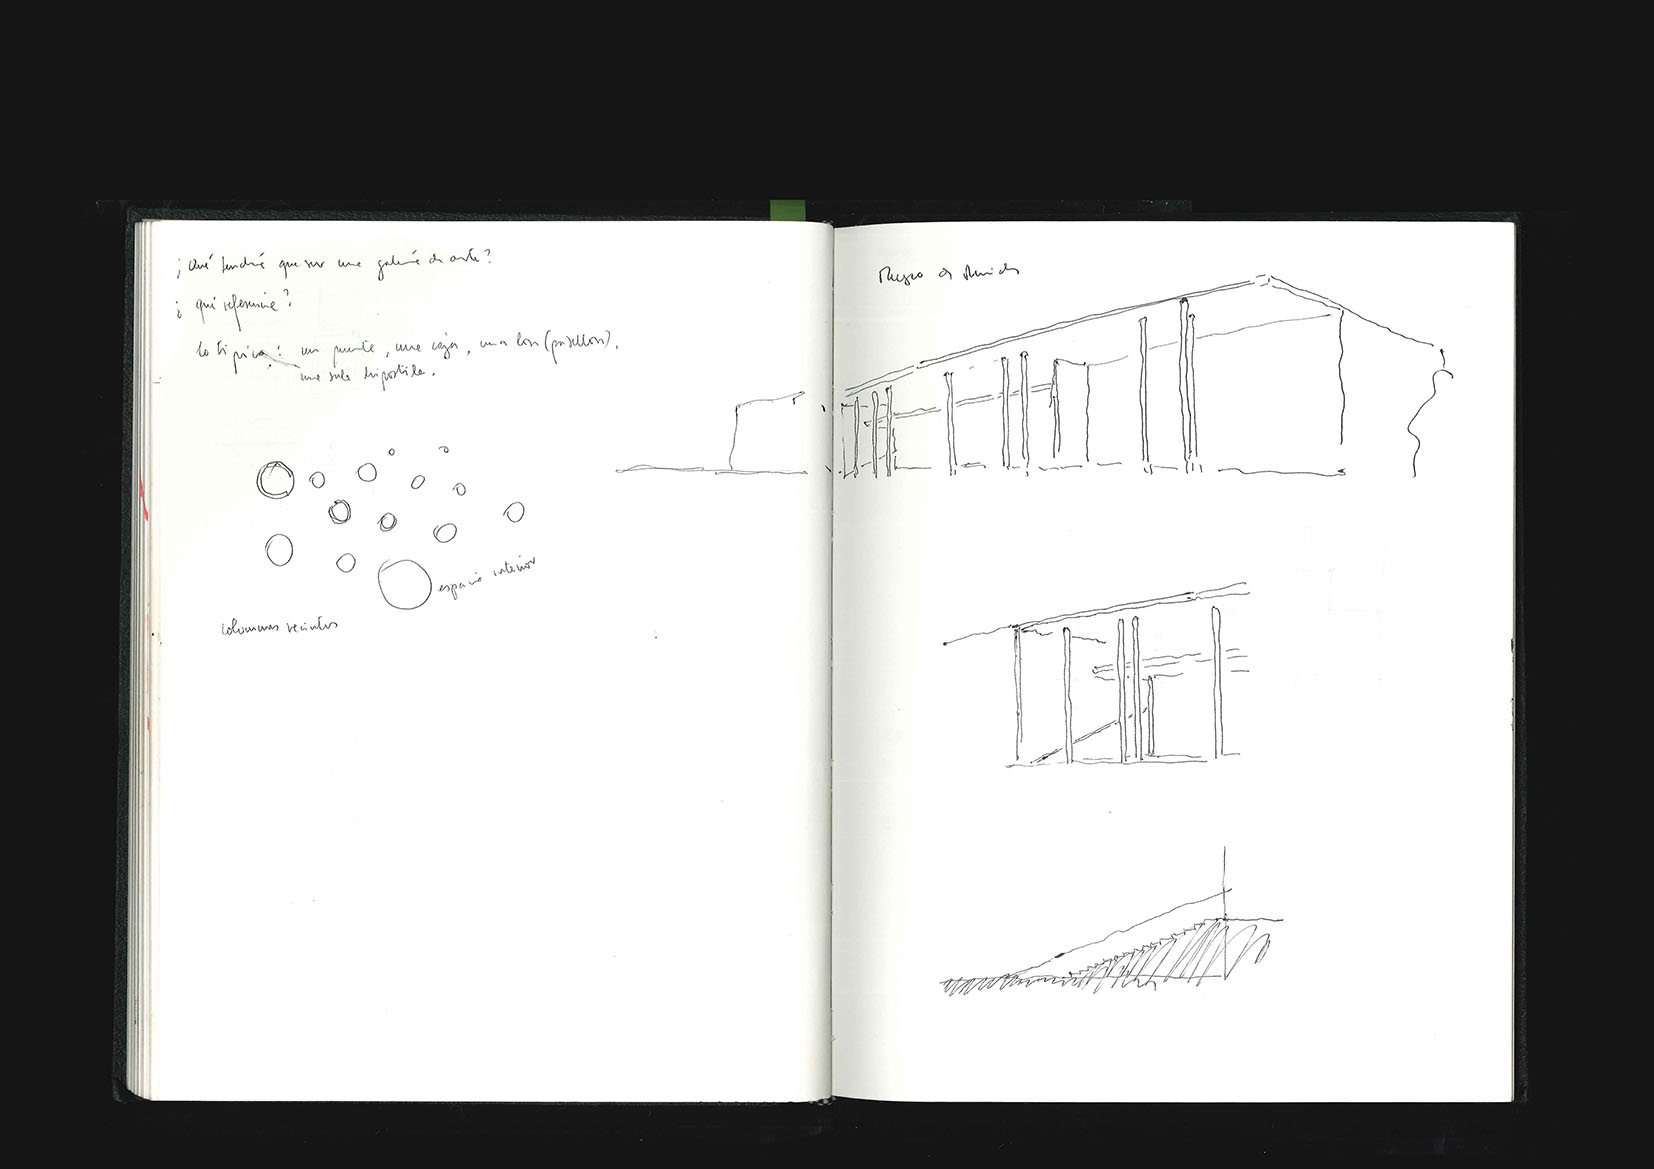 ¿Qué tendría que ser una galería de arte?
¿qué referencia?
lo típico: un puente, una caja, una losa (pasillos),
una sala hipóstila.
espacio interior
columnas recintos